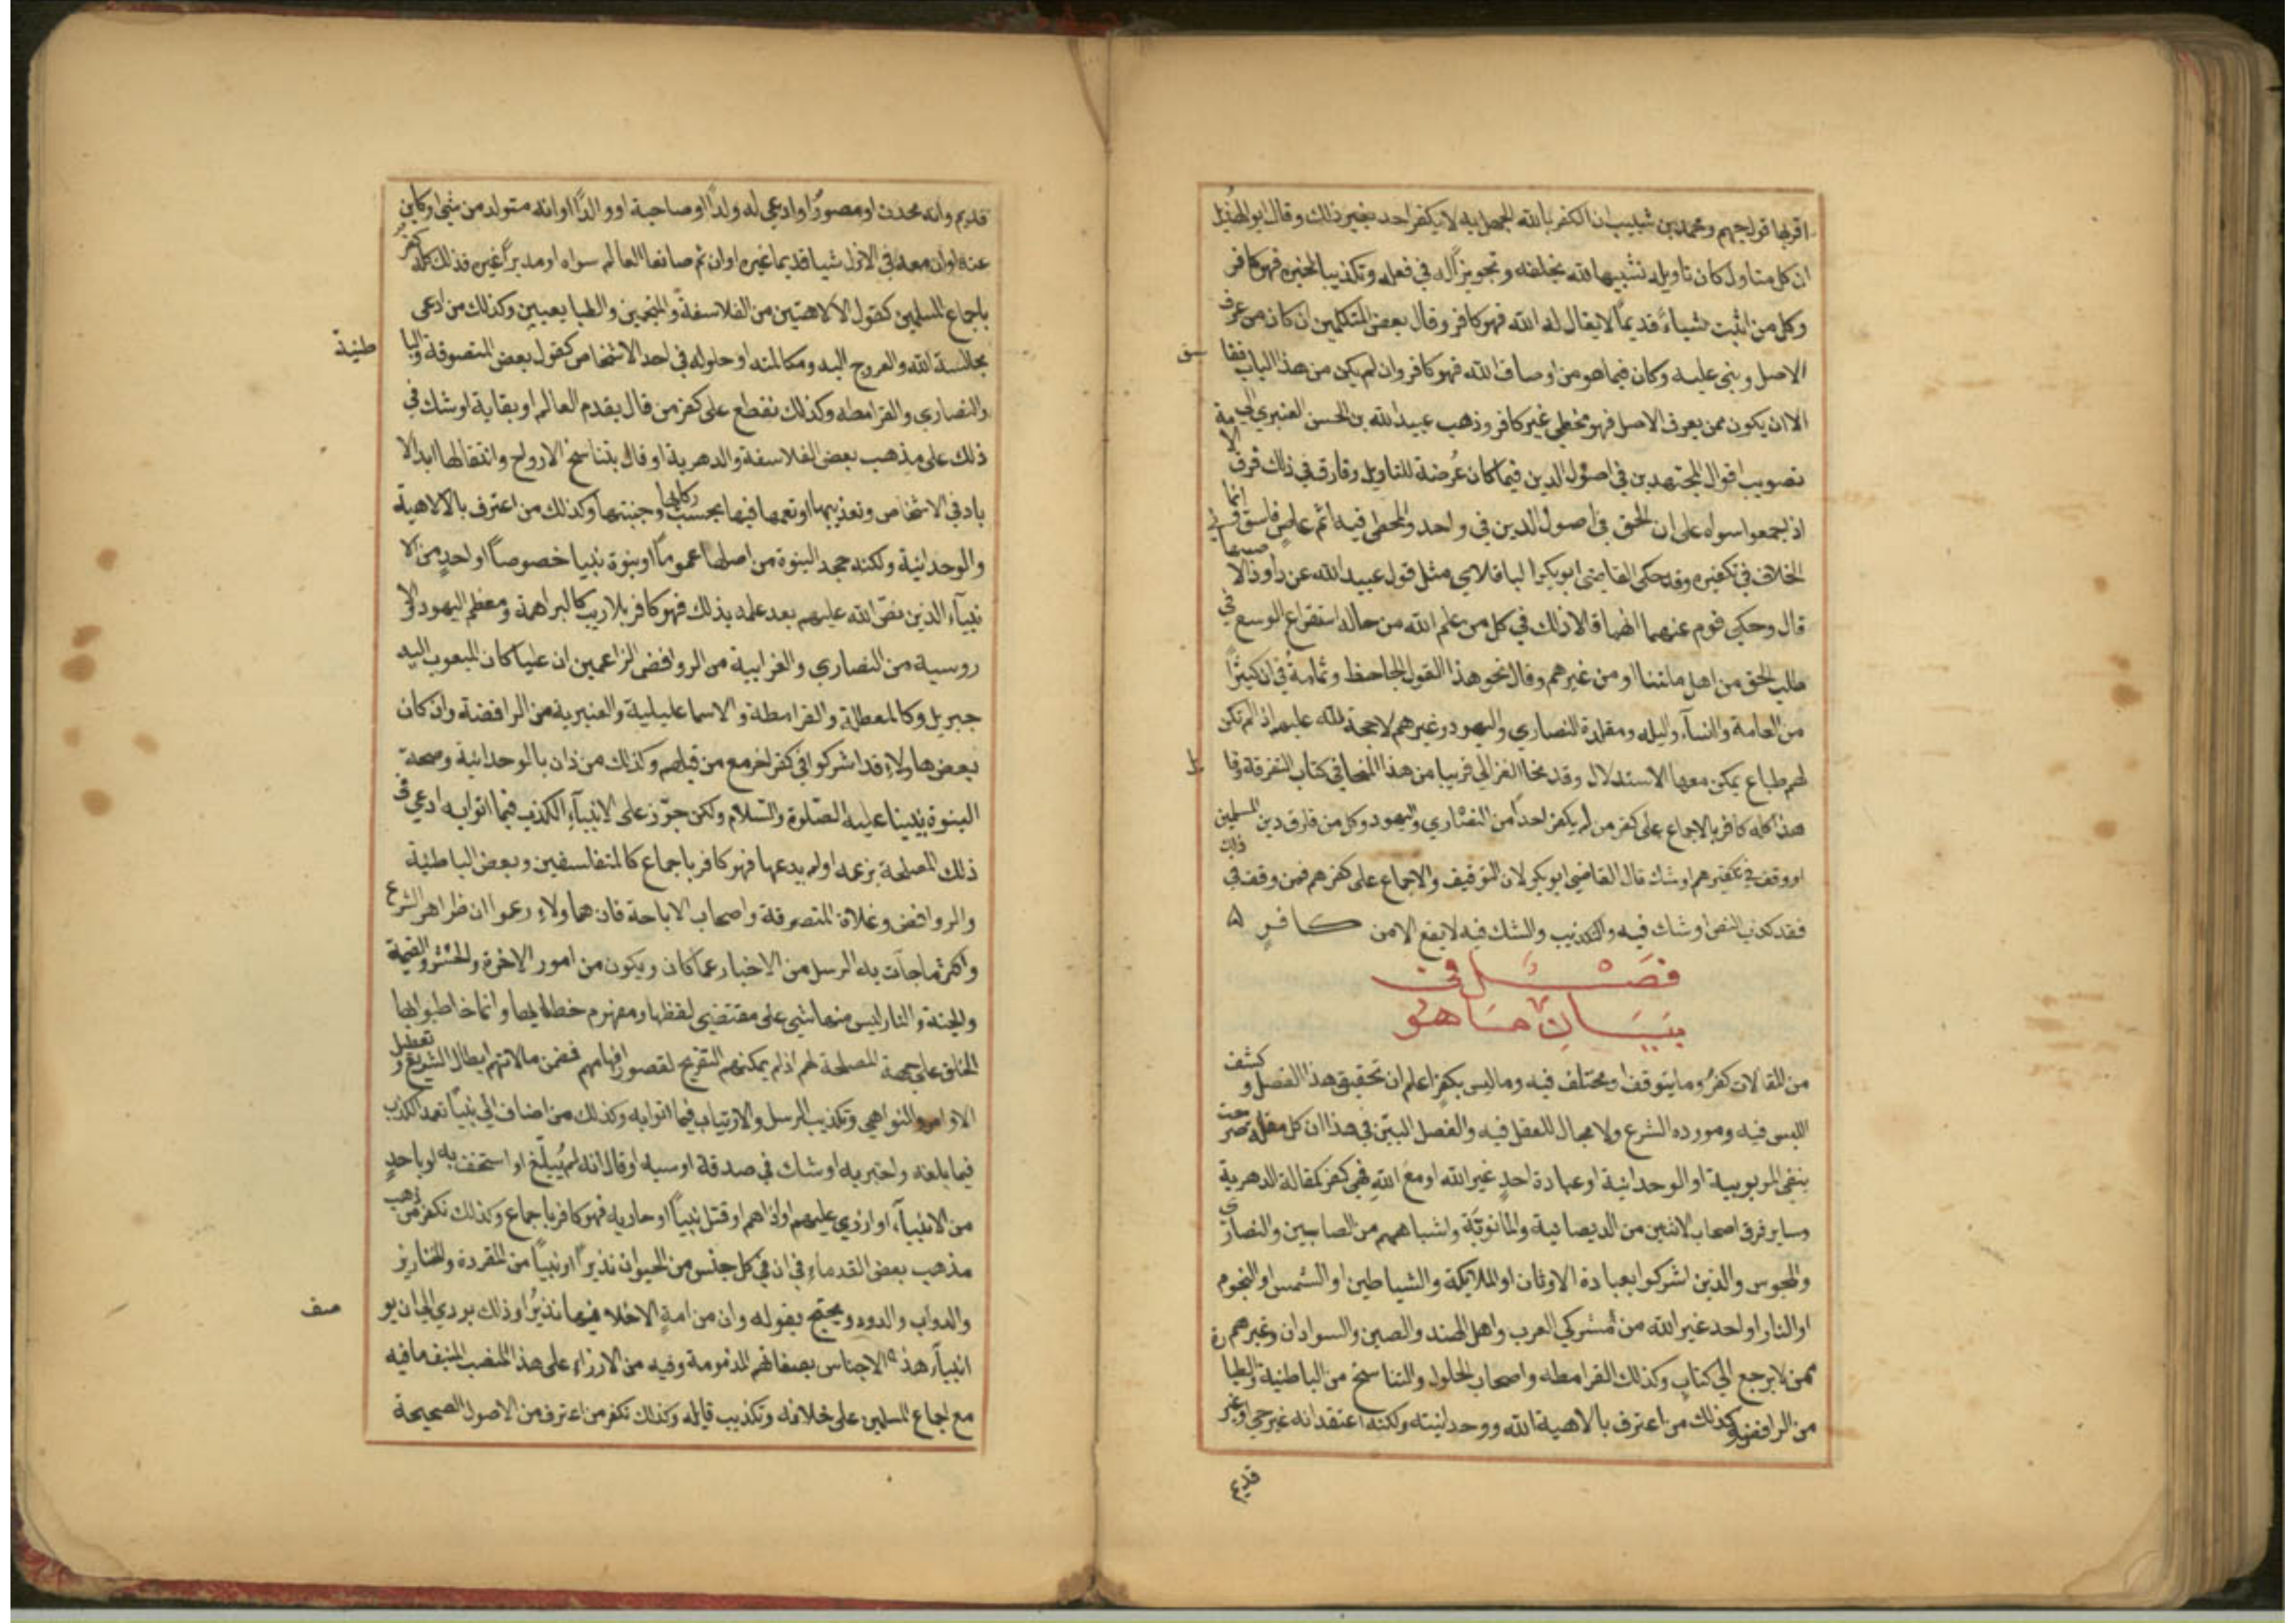 اقربها قول جهم ومحمد بن شبيب ان الكفر بالله الجهل به لا يكفر احد بغير ذلك وقال ابو الهذيل
ان كل متاول كان تاويله تشبيها لله بخلقه وتجويزًا له في فعله وتكذيبا لخبره فهو كافر
وكل من اثبت شياءً قديمًا لا يقال له الله فهو كافر وقال بعض المتكلمين ان كان من عرف
الاصل وبنى عليه وكان فيما هو من اوصاف الله فهو كافر وان لم يكن من هذا الباب ففا
سق
الا ان يكون ممن يعرف الاصل فهو مخطى غير كافر وذهب عبيد الله بن الحسن العنبري الى
تصويب اقوال المجتهدين في اصول الدين فيما كان عُرضة للتاويل وفارق في ذلك فرق الا مة
اذ اجمعوا سواه على ان الحق في اصول الدين في واحد والمخطى فيه اثم عاصٍ فاسق وانما في
الخلاف في تكفيره وقد حكى القاضي ابو بكر الباقلاني مثل قول عبيد الله عن داود الا صبهاني
قال وحكى قوم عنهما انهما قالا ذلك في كل من علم الله من حاله استفراغ الوسع في
طلب الحق من اهل ملتنا او من غيرهم وقال نحو هذا القول الجاحظ وثمامة في ان كثيرًا
من العامة والنسآء والبله ومقلدة النصاري واليهود وغيرهم لا حجة لله عليهم اذ لم تكن
لهم طباع يمكن معها الاستدلال وقد نحا الغزالي قريبا من هذا المنحا في كتاب التفرقة وقا
يل
هذا كله كافر بالاجماع على كفر من لم يكفر احدًا من النصاري واليهود وكل من فارق دين المسلمين
او وقف في تكفيرهم او شك قال القاضي ابو بكر لان التوقيف والاجماع على كفرهم فمن وقف في ذلك
فقد كذب النص او شك فيه والتكذيب والشك فيه لا يقع الا من كافرٍ
فصل في
بيان ما هو
من المقالات كفرٌ وما يتوقف او يختلف فيه وما ليس بكفرٍ اعلم ان تحقيق هذا الفصل وكشف
اللبس فيه ومورده الشرع ولا مجال للعقل فيه والفصل البيّن في هذا ان كل مقالة صرحت
بنفي الربوبية او الوحدانية او عبادة احدٍ غير الله او مع اللهِ فهي كفر كمقالة الدهرية
وساير فرق اصحاب الاثنين من الديصانية والمانويّة واشباههم من الصابيين والنصارى
والمجوس والذين اشركوا بعبادة الاوثان او الملايكة والشياطين او الشمس او النجوم
او النار او احد غير الله من مشركي العرب واهل الهند والصين والسودان وغيرهم
ممن لا يرجع الى كتابٍ وكذلك القرامطه واصحاب الحلول والتناسخ من الباطنية والطيا رة
من الرافضه وكذلك من اعترف بالاهية الله ووحدانيته ولكنه اعتقد انه غير حي او غير
قديم
قديم وانه محدث او مصورٌ او ادعى له ولدًا او صاحبة او والدًا او انه متولد من شي او كاين
عنه او ان معه في الازل شيا قديما غيره او ان ثم صانعا للعالم سواه او مدبرًا غيره فذلك كله كفر
باجماع المسلمين كقول الالاهيين من الفلاسفة والمنجمين والطبايعيين وكذلك من ادعى
مجالسة الله والعروج اليه ومكالمته او حلوله في احد الاشخاص كقول بعض المتصوفة والبا
طنية
والنصاري والقرامطه وكذلك نقطع على كفر من قال بقدم العالم او بقايه او شك في
ذلك على مذهب بعض الفلاسفة والدهرية او قال بتناسخ الارواح وانتقالها ابد الا
باد في الاشخاص وتعذيبها او تنعمها فيها بحسب زكايها وخبثها وكذلك من اعترف بالالاهية
والوحدانية ولكنه جحد النبوة من اصلها عمومًا او نبوة نبينا خصوصًا او احدٍ من الا
نبيآء الذين نصّ الله عليهم بعد علمه بذلك فهو كافر بلا ريب كالبراهمة ومعظم اليهود والا
روسية من النصاري والغرابية من الروافض الزاعمين ان عليا كان المبعوث اليه
جبريل وكالمعطلة والقرامطة والاسماعليلية والعنبرية من الرافضة وان كان
بعض هاولاءِ قد اشركوا في كفر اخر مع من قبلهم وكذلك من دان بالوحدانية وصحة
النبوة نبينا عليه الصّلوة والسّلام ولكن جوّز على الانبيآءِ الكذب فيما اتوا به ادعى في
ذلك المصلحة بزعمه او لم يدعها فهو كافر باجماع كالمتفلسفين وبعض الباطنية
والروافض وغلاة المتصوفة واصحاب الاباحة فان هاولاءِ زعموا ان ظواهر الشرع
واكثر ماجآت به الرسل من الاخبار عما كان ويكون من امور الاخرة والحشر والقيمة
والجنة والنار ليس منها شي على مقتضى لفظها ومفهوم خطابها وانما خاطبوا بها
الخلق على جهة المصلحة لهم اذ لم يمكنهم التصريح لقصور افهامهم فضمن مقالاتهم ابطال الشرايع وتعطيل
الاوامر والنواهي وتكذيب الرسل والارتياب فيما اتوا به وكذلك من اضاف الى نبيّنا تعمد الكذب
فيما بلغه واخبر به او شك في صدقه او سبه او قال انه لم يُبلّغ او استخف به او باحدٍ
من الانبيآءِ او ازري عليهم او اذاهم او قتل نبيًا او حاربه فهو كافر باجماع وكذلك نكفر من ذهب
مذهب بعض القدماءِ في ان في كل جنس من الحيوان نذيرًا او نبيًا من القردة والخنازير
والدواب والدود ويحتج بقوله وان من امةٍ الا خلا فيها نذيرٌ اوذلك يودي الى ان يو
صف
انبيآء هذه الاجناس بصفاتهم المذمومة وفيه من الازراءِ على هذا المنصب المنيف ما فيه
مع اجماع المسلمين على خلافه وتكذيب قايله وكذلك نكفر من اعترف من الاصول الصحيحة